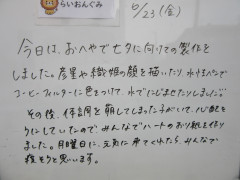 らいおんぐみ
6/23(金)
今日は、おへやで七夕に向けての製作を
しました。彦星や織姫の顔を描いたり、水性ペンで
コーヒーフィルターに色をつけて、水でにじませたりしました!
その後、体調を崩してしまった子がいて、心配を
していたのでみんなでハートのおり紙を作り
ました。月曜日に、元気に来てくれたら、みんなで
渡そうと思います。